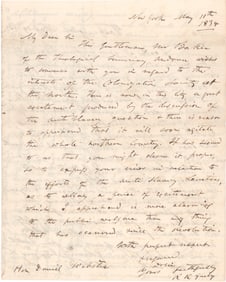 New York May 11th
1834
My dear Sir
This Gentleman, Mr
of the Theological Seminary, Andover wishes
to converse with you in regard to the
interests of the Colonization Society at
the North. There is now, in this City a great
excitement produced by the discussion of
the anti Slavery question & there is reason
to apprehend that it will soon agitate
the whole northern country. It has seemed
to us, that you might deem it proper,
so to employ your views in relation to
the efforts of the Anti Slavery Societies,
as to allay a spirit of excitement
which I apprehend is more alarming
to the public welfare than any thing
that has occurred since the revolution.
With perfect respect
Dear Sir
Yours faithfully
R. R. Gurley
Hon Daniel Webster